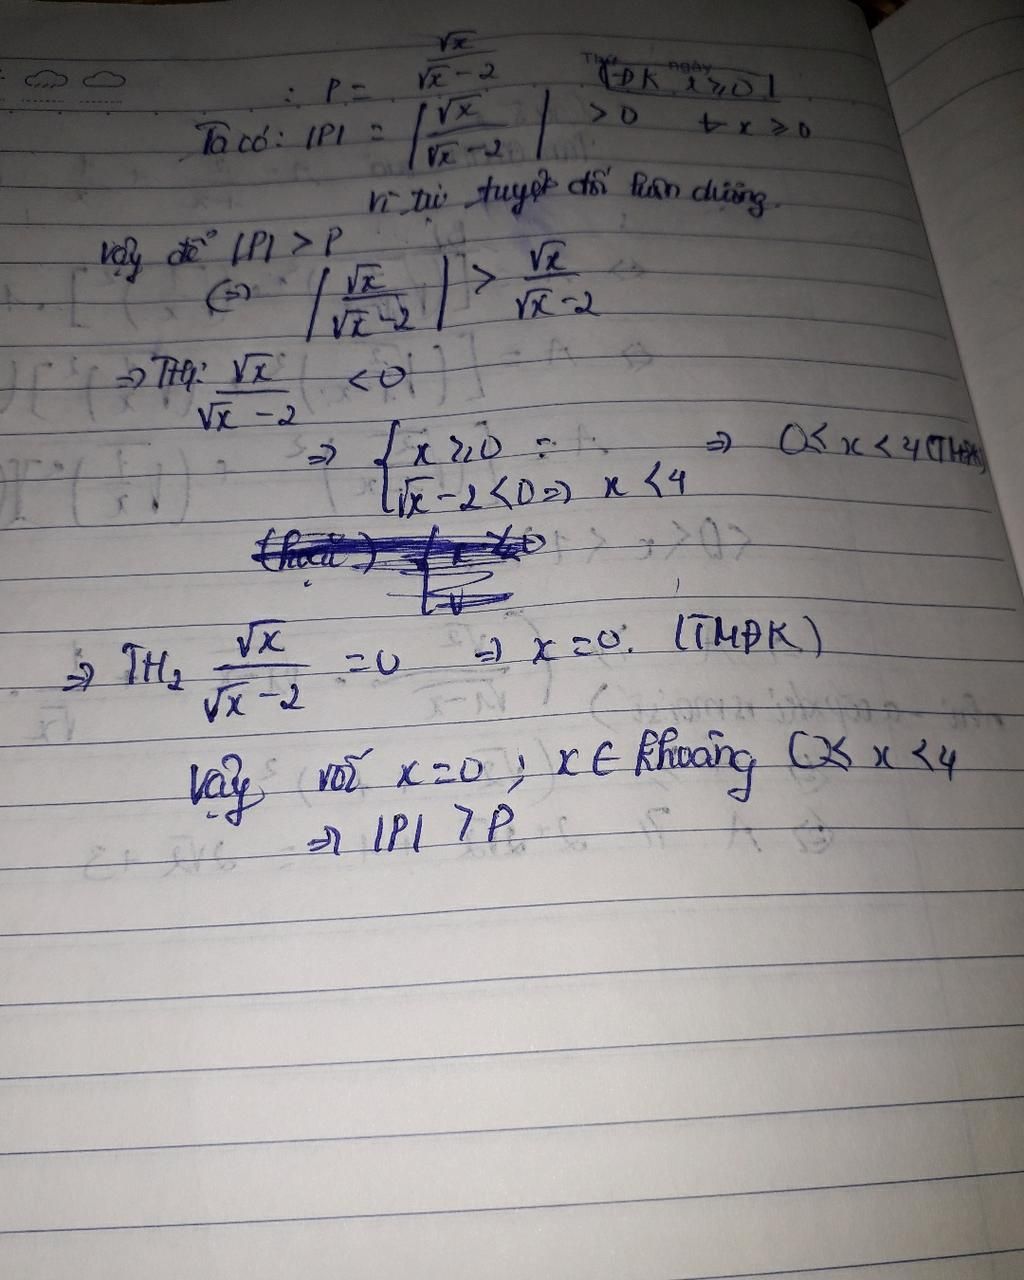 : P = √x / (√x - 2) (ĐK x ≥ 0)
Ta có: |P| = |√x / (√x - 2)| > 0 ∀ x ≥ 0
tuyệt đối luôn dương.
Vậy để |P| > P
(=> |√x / (√x - 2)| > √x / (√x - 2)
=> TH1: √x / (√x - 2) < 0
=> { x ≥ 0 => 0 < x < 4 (TMĐK)
√x - 2 < 0 => x < 4
=> TH2 √x / (√x - 2) = 0 => x = 0. (TMĐK)
Vậy với x = 0 ; x ∈ khoảng 0 < x < 4
=> |P| > P